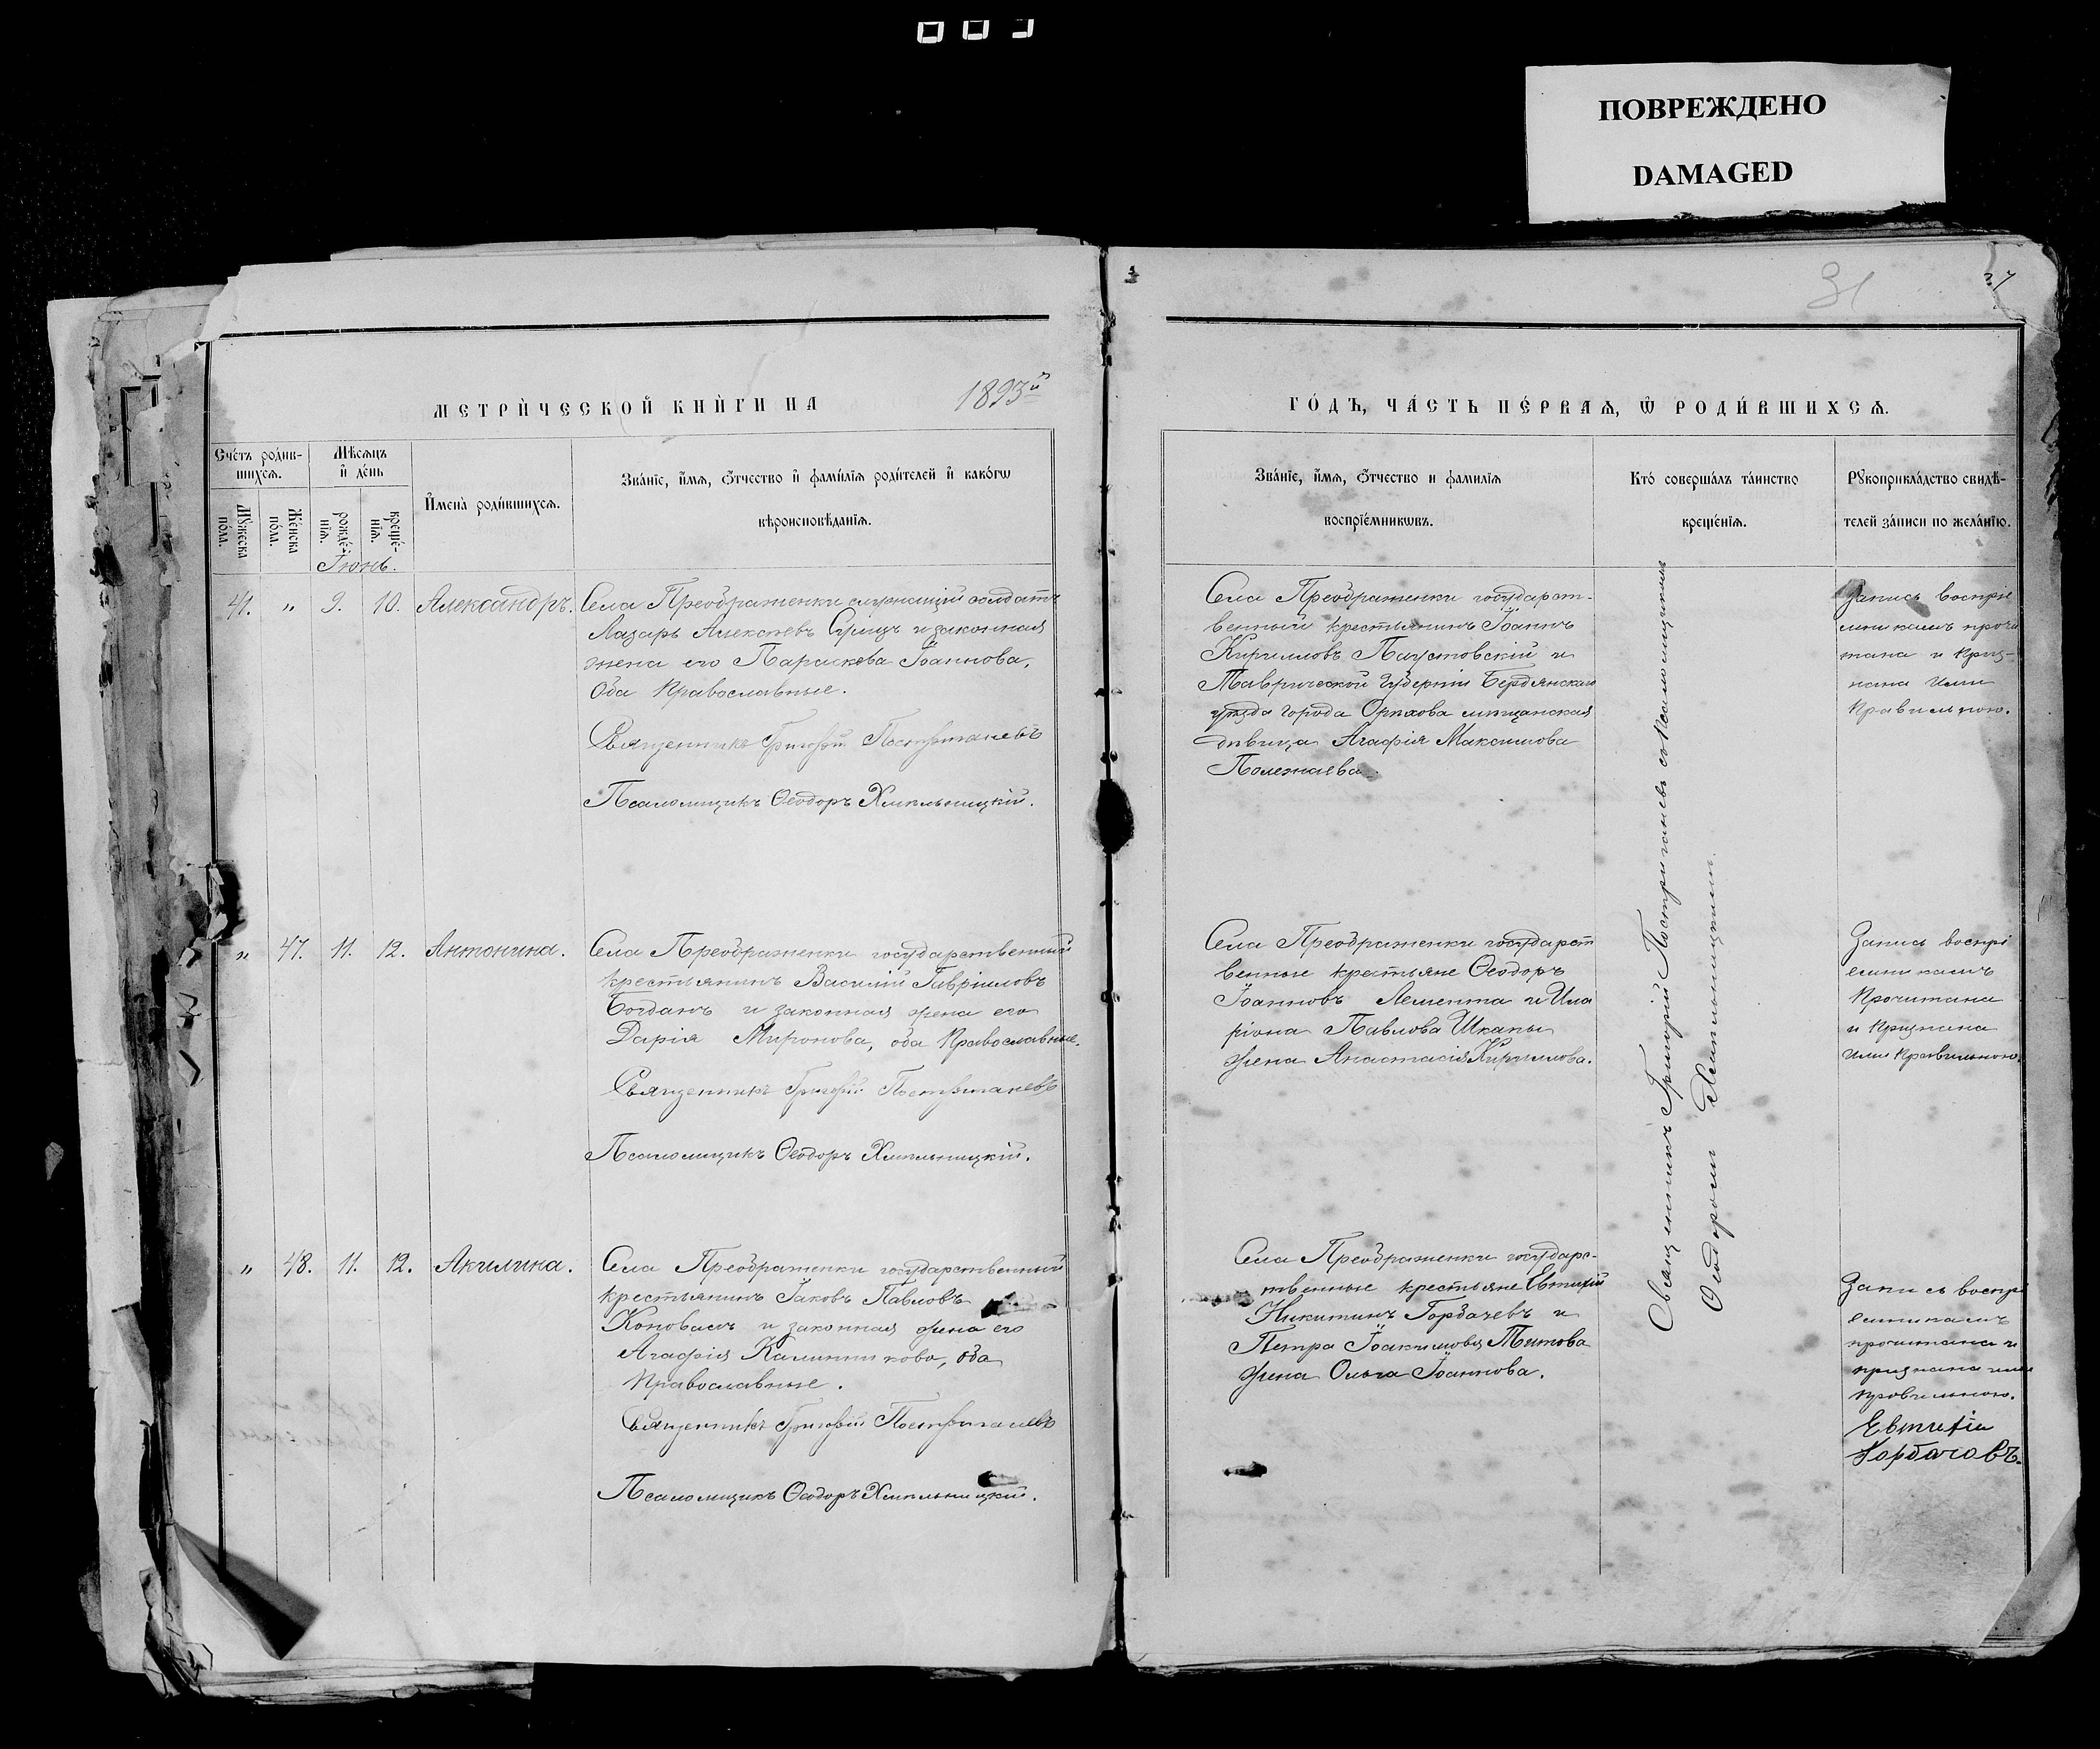 ПОВРЕЖДЕНО
DAMAGED
31
37
МЕТРИ́ЧЕСКОЙ КНИ́ГИ НА 1893й
ГО́ДЪ, ЧА́СТЬ ПЕ́РВАѦ, Ѡ РОДИ́ВШИХСѦ.
Сче́тъ роди́в-
шихсѧ.
Мꙋ́жеска по́ла.
Же́нска по́ла.
Мѣ́сѧцъ
и҆ де́нь
рожде́-
нїѧ.
креще́-
нїѧ.
И҆мена̀ роди́вшихсѧ.
Зва́нїе, и҆́мѧ, ѻ҆́тчество и҆ фами́лїѧ роди́телей и҆ како́гѡ
вѣроисповѣ́данїѧ.
Зва́нїе, и҆́мѧ, ѻ҆́тчество и фами́лїѧ
воспрїе́мникѡвъ.
Кто̀ соверша́лъ та́инство
креще́нїѧ.
Рꙋкоприкла́дство свидѣ́-
телей за́писи по жела́нїю.
Іюнь.
41. " 9. 10. Александръ.
Села Преображенки служащій солдатъ
Лазарь Алексѣевъ Сріцъ и законная
жена его Параскева Іоаннова,
оба Православные.
Священникъ Григорій Постриганевъ
Псаломщикъ Ѳеодоръ Хмѣльницкій.
Села Преображенки государст-
венный крестьянинъ Іоаннъ
Кирилловъ Паустовскій и
Таврической Губерніи Бердянскаго
уѣзда города Орѣхова мѣщанская
дѣвица Агафія Максимова
Полежаева.
Священникъ Григорій Постриганевъ съ псаломщикомъ
Ѳеодоромъ Хмѣльницкимъ.
Запись воспріе
мникамъ прочи
тана и приз-
нана ими
правильною.
" 47. 11. 12. Антонина.
Села Преображенки государственный
крестьянинъ Василій Гавріиловъ
Богданъ и законная жена его
Дарія Миронова, оба Православные.
Священникъ Григорій Постриганевъ
Псаломщикъ Ѳеодоръ Хмѣльницкій.
Села Преображенки государст
венные крестьяне Ѳеодоръ
Іоанновъ Лемента и Ила
ріона Павлова Шкапы
жена Анастасія Кириллова.
Запись воспрі
емникамъ
прочитана
и признана
ими правильною.
" 48. 11. 12. Акилина.
Села Преображенки государственный
крестьянинъ Іаковъ Павловъ
Коновалъ и законная жена его
Агафія Калинникова, оба
Православные.
Священникъ Григорій Постриганевъ
Псаломщикъ Ѳеодоръ Хмѣльницкій.
Села Преображенки государс-
твенные крестьяне Евтихій
Никитинъ Горбачевъ и
Петра Іоакимова Титова
жена Ольга Іоаннова.
Запись воспрі
емникамъ
прочитана и
признана ими
правильною.
Евтихіи
Горбачовъ.